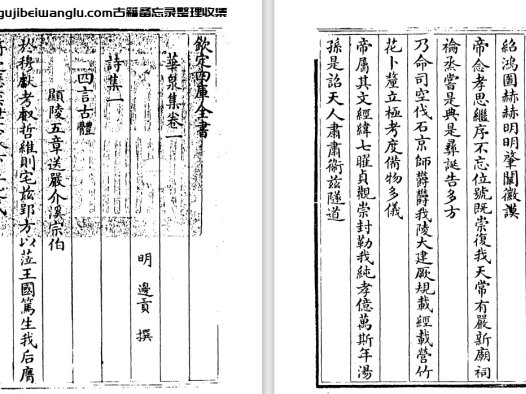 gujibeiwanglu.com古籍备忘录整理收集
欽定四庫全書
華泉集卷一
明 邊貢 撰
詩集一
四言古體
顯陵五章送嚴介溪宗伯
於穆獻考叡哲維則宅茲郢方以蒞王國篤生我后膺
紹鴻圖赫赫明明肇闡徽謨
帝念孝思繼序不忘位號既崇復我天常有嚴新廟祠
禴烝嘗是典是彝誕告多方
乃命司空伐石京師鬱鬱我陵大建厥規載經載營竹
花卜釐立極考度備物多儀
帝屬其文經緯七曜貞觀崇封勒我純孝億萬斯年湯
孫是詔天人肅肅衛茲隧道